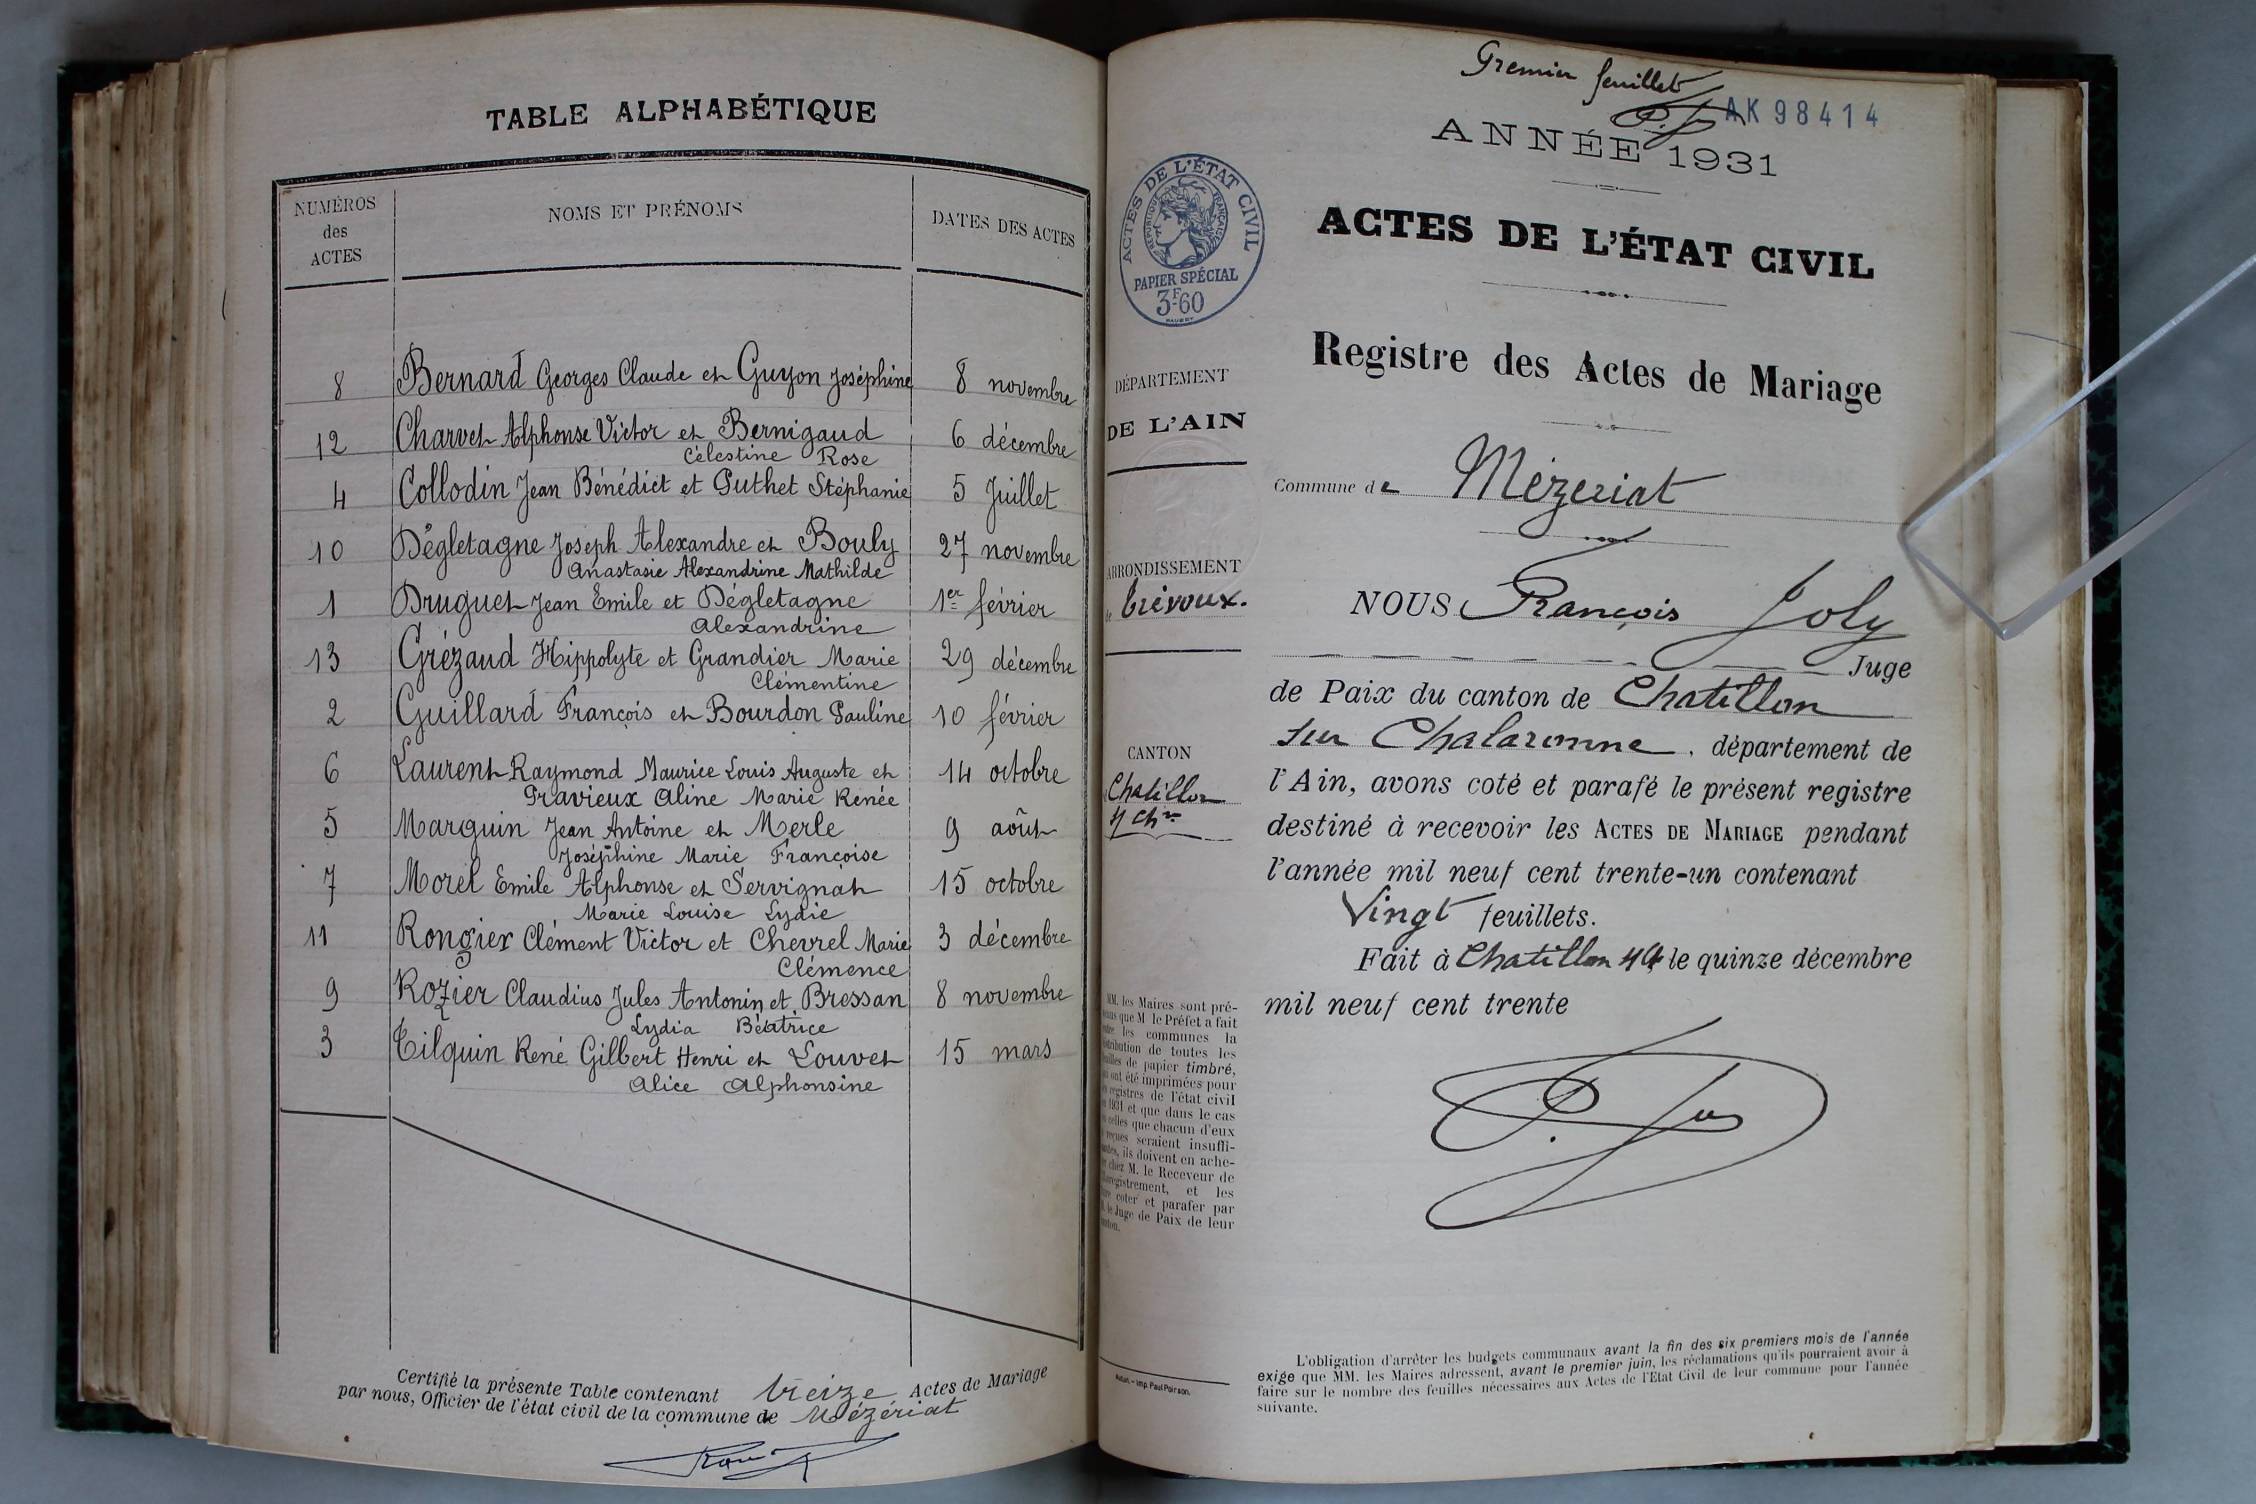 TABLE ALPHABÉTIQUE
NUMÉROS des ACTES
NOMS ET PRÉNOMS
DATES DES ACTES
8 Bernard Georges Claude et Guyon Joséphine 8 novembre
12 Charvet Alphonse Victor et Bernigaud 6 décembre
Célestine Rose
4 Collodin Jean Bénédict et Puthet Stéphanie 5 Juillet
10 Dégletagne Joseph Alexandre et Bouly 27 novembre
Anastasie Alexandrine Mathilde
1 Druguet Jean Emile et Dégletagne 1er février
Alexandrine
13 Grézaud Hippolyte et Grandier Marie 29 décembre
Clémentine
2 Guillard François et Bourdon Pauline 10 février
6 Laurent Raymond Maurice Louis Auguste et 14 octobre
Pravieux Aline Marie Renée
5 Marguin Jean Antoine et Merle 9 août
Joséphine Marie Françoise
7 Morel Emile Alphonse et Servignat 15 octobre
Marie Louise Lydie
11 Rongier Clément Victor et Chevrel Marie 3 décembre
Clémence
9 Rozier Claudius Jules Antonin et Bressan 8 novembre
Lydia Béatrice
3 Tilquin René Gilbert Henri et Louvet 15 mars
Alice Alphonsine
Certifié la présente Table contenant treize Actes de Mariage
par nous, Officier de l'état civil de la commune de Mézériat
Premier feuillet
AK 98414
ANNÉE 1931
ACTES DE L'ÉTAT CIVIL
RÉPUBLIQUE FRANÇAISE
PAPIER SPÉCIAL
3F.60
ACTES DE L'ÉTAT CIVIL
Registre des Actes de Mariage
DÉPARTEMENT
DE L'AIN
Commune de Mézeriat
ARRONDISSEMENT
de Trévoux.
CANTON
Chatillon
s/ Chne
NOUS François Joly
Juge
de Paix du canton de Chatillon
sur Chalaronne, département de
l'Ain, avons coté et parafé le présent registre
destiné à recevoir les ACTES DE MARIAGE pendant
l'année mil neuf cent trente-un contenant
Vingt feuillets.
Fait à Chatillon s/C le quinze décembre
mil neuf cent trente
MM. les Maires sont pré-
venus que M le Préfet a fait
entre les communes la
distribution de toutes les
feuilles de papier timbré,
qui ont été imprimées pour
les registres de l'état civil
en 1931 et que dans le cas
où celles que chacun d'eux
a reçues seraient insuffi-
santes, ils doivent en ache-
ter chez M. le Receveur de
l'Enregistrement, et les
faire coter et parafer par
M. le Juge de Paix de leur
canton.
Imp. Paul Poirson.
L'obligation d'arrêter les budgets communaux avant la fin des six premiers mois de l'année
exige que MM. les Maires adressent, avant le premier juin, les réclamations qu'ils pourraient avoir à
faire sur le nombre des feuilles nécessaires aux Actes de l'Etat Civil de leur commune pour l'année
suivante.